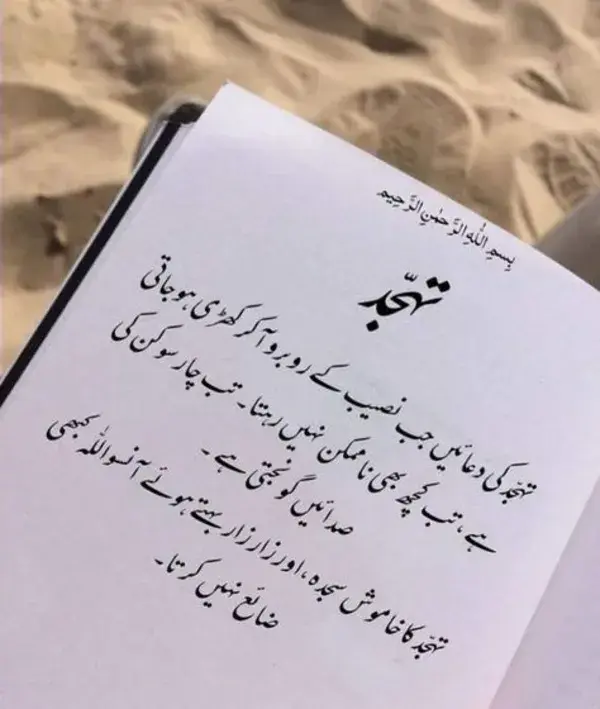 بِسْمِ اللّٰهِ الرَّحْمٰنِ الرَّحِيْمِ
تہجّد
تہجّد کی دعائیں جب نصیب کے روبرو آ کر کھڑی ہو جاتی
ہے، تب کچھ بھی ناممکن نہیں رہتا۔ تب چار سو کن کی
صدائیں گونجتی ہے۔
تہجّد کا خاموش سجدہ، اور زار زار بہتے ہوئے آنسو اللّٰہ کبھی
ضائع نہیں کرتا۔